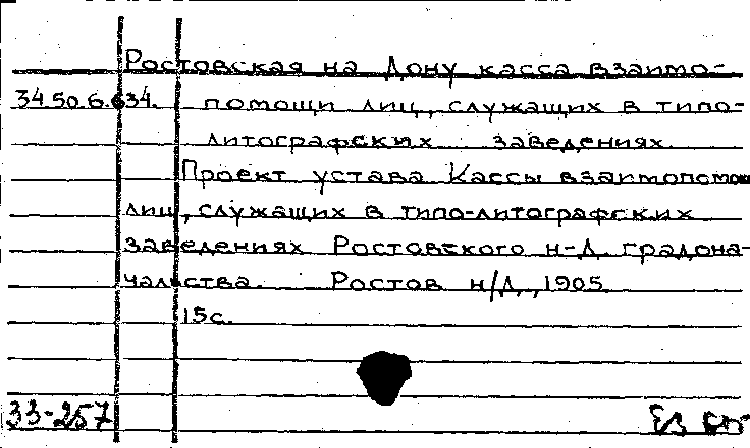 Ростовская на Дону касса взаимо-
34.50.6.634. помощи лиц, служащих в типо-
литографских заведениях.
Проект устава Кассы взаимопомощи
лиц, служащих в типо-литографских
заведениях Ростовского н-Д. градона-
чальства. Ростов н/Д., 1905.
15с.
33-257